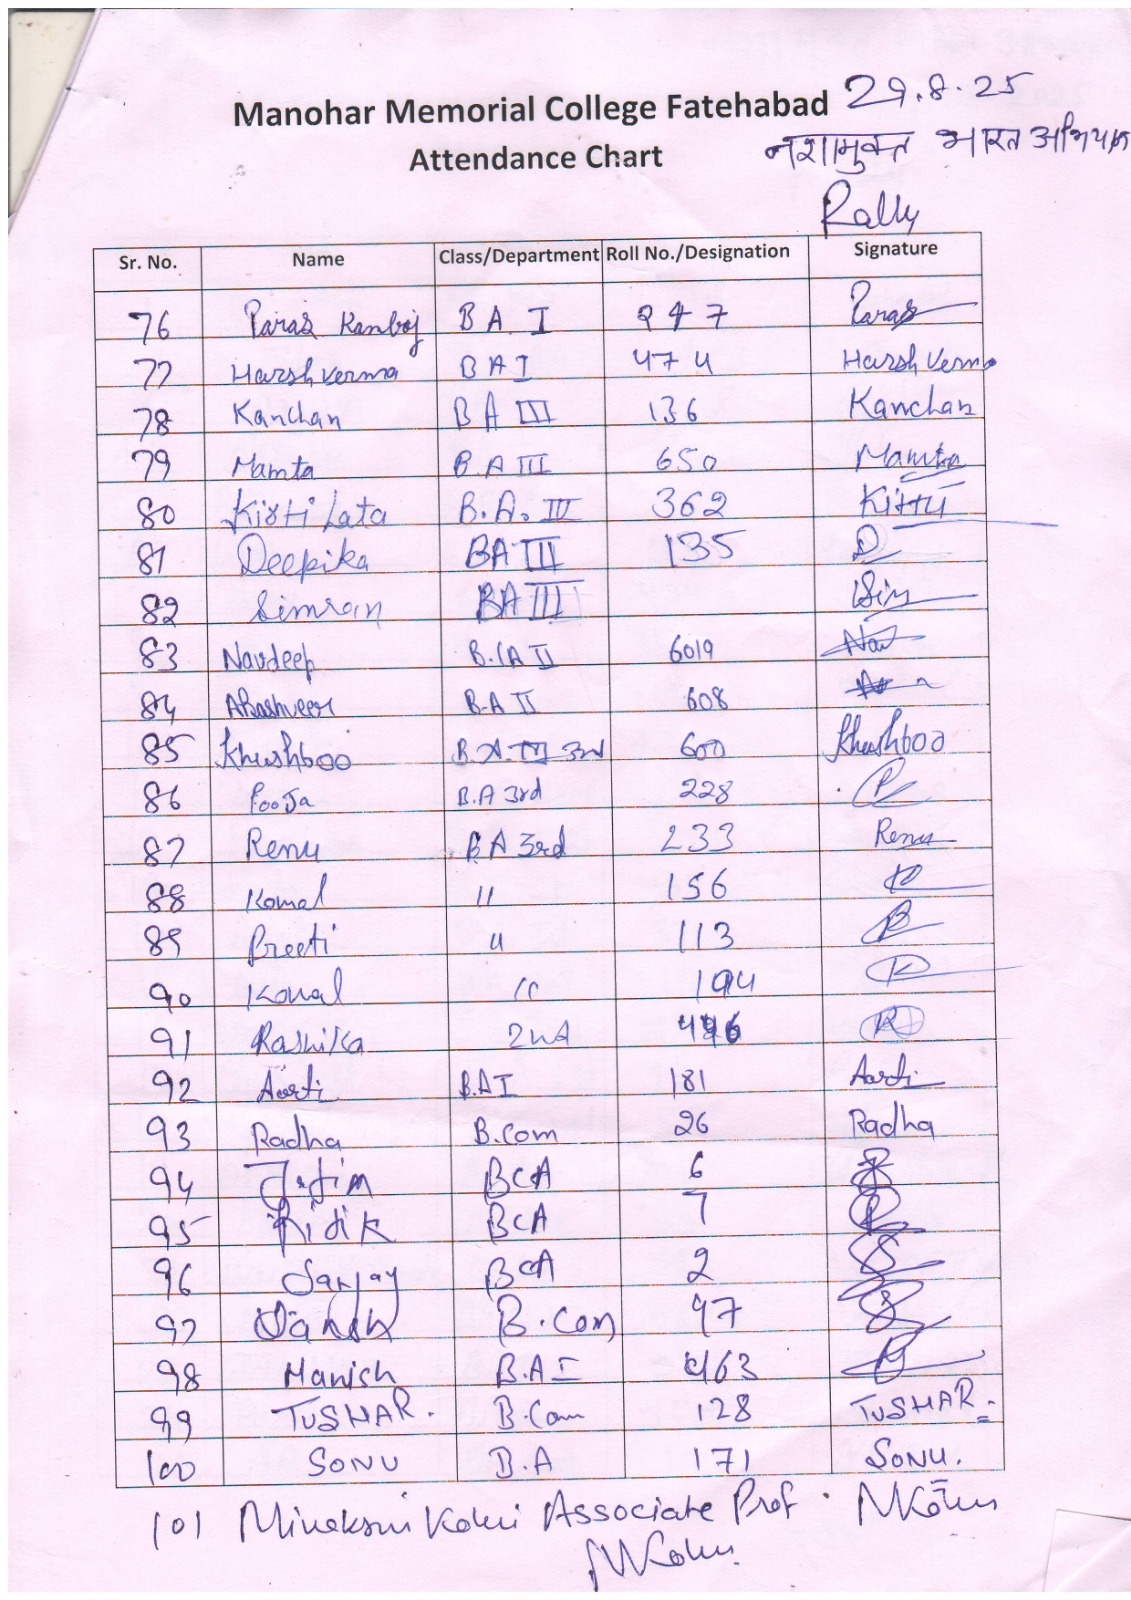 Manohar Memorial College Fatehabad 29.8.25
Attendance Chart नशामुक्त भारत अभियान
Rally
Sr. No. Name Class/Department Roll No./Designation Signature
76 Paras Kanboj BA I 247 Paras
77 Harsh Verma BA I 474 Harsh Verma
78 Kanchan BA III 136 Kanchan
79 Mamta B.A III 650 Mamta
80 Kirti Lata B.A. III 362 Kirti
81 Deepika BA III 135 D
82 Simran BA III Sim
83 Navdeep B.A II 6019 Nav
84 Akashveer B.A II 608
85 Khushboo B.A. 3rd 600 Khushboo
86 Pooja B.A 3rd 228 P
87 Renu BA 3rd 233 Renu
88 Komal 11 156 K
89 Preeti 11 113 P
90 Komal 11 194 K
91 Rashika 2nd 446 R
92 Aarti B.A I 181 Aarti
93 Radha B.Com 26 Radha
94 Jatin BCA 6
95 Ritik BCA 7 R
96 Sanjay BCA 2 S
97 Vansh B.Com 97
98 Manish B.A I 463
99 TUSHAR. B.Com 128 TUSHAR.
100 SONU B.A 171 SONU.
101 Minakshi Kohli Associate Prof. NKohli
NKohli